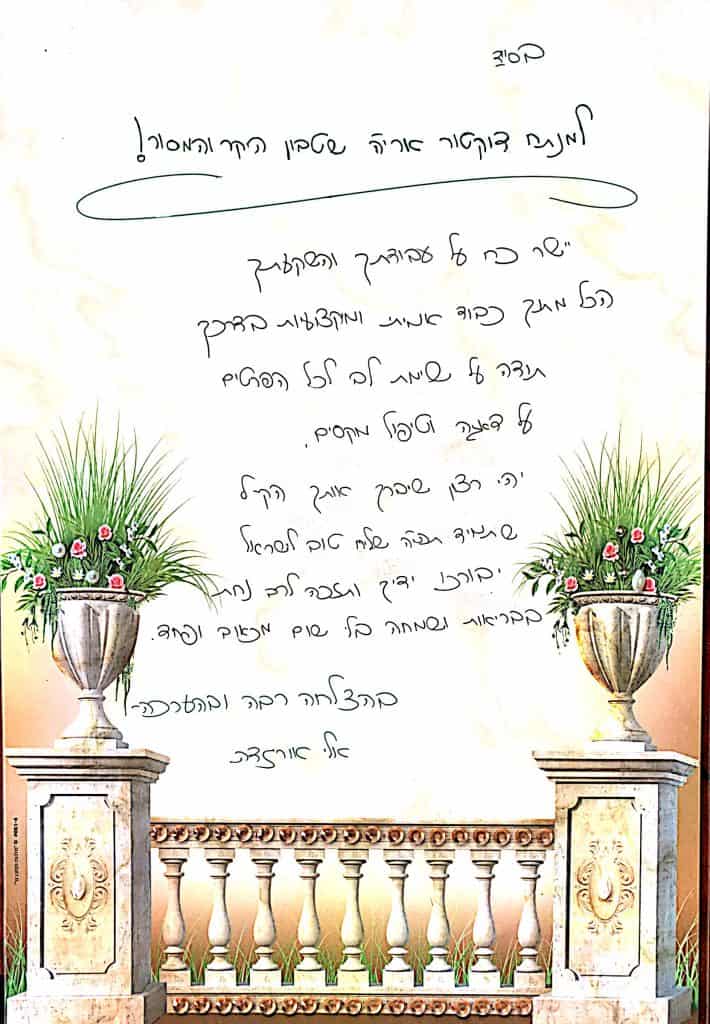 בס״ד
למנתח דוקטור אריה שטבון היקר והמסור!
יישר כח על עבודתך והשקעתך
הכל מתוך כבוד אמיתי ומקצועיות בדרכך
תודה על שימת לב לכל הפרטים
על דאגה וטיפול מקסים.
יהי רצון שיברך אותך הקי״ל
שתמיד תהיה שליח טוב לישראל
יבורכו ידיך ותזכה לרב נחת
בבריאות ושמחה בלי שום מכאוב ופחד.
בהצלחה רבה ובהערכה-
אלי